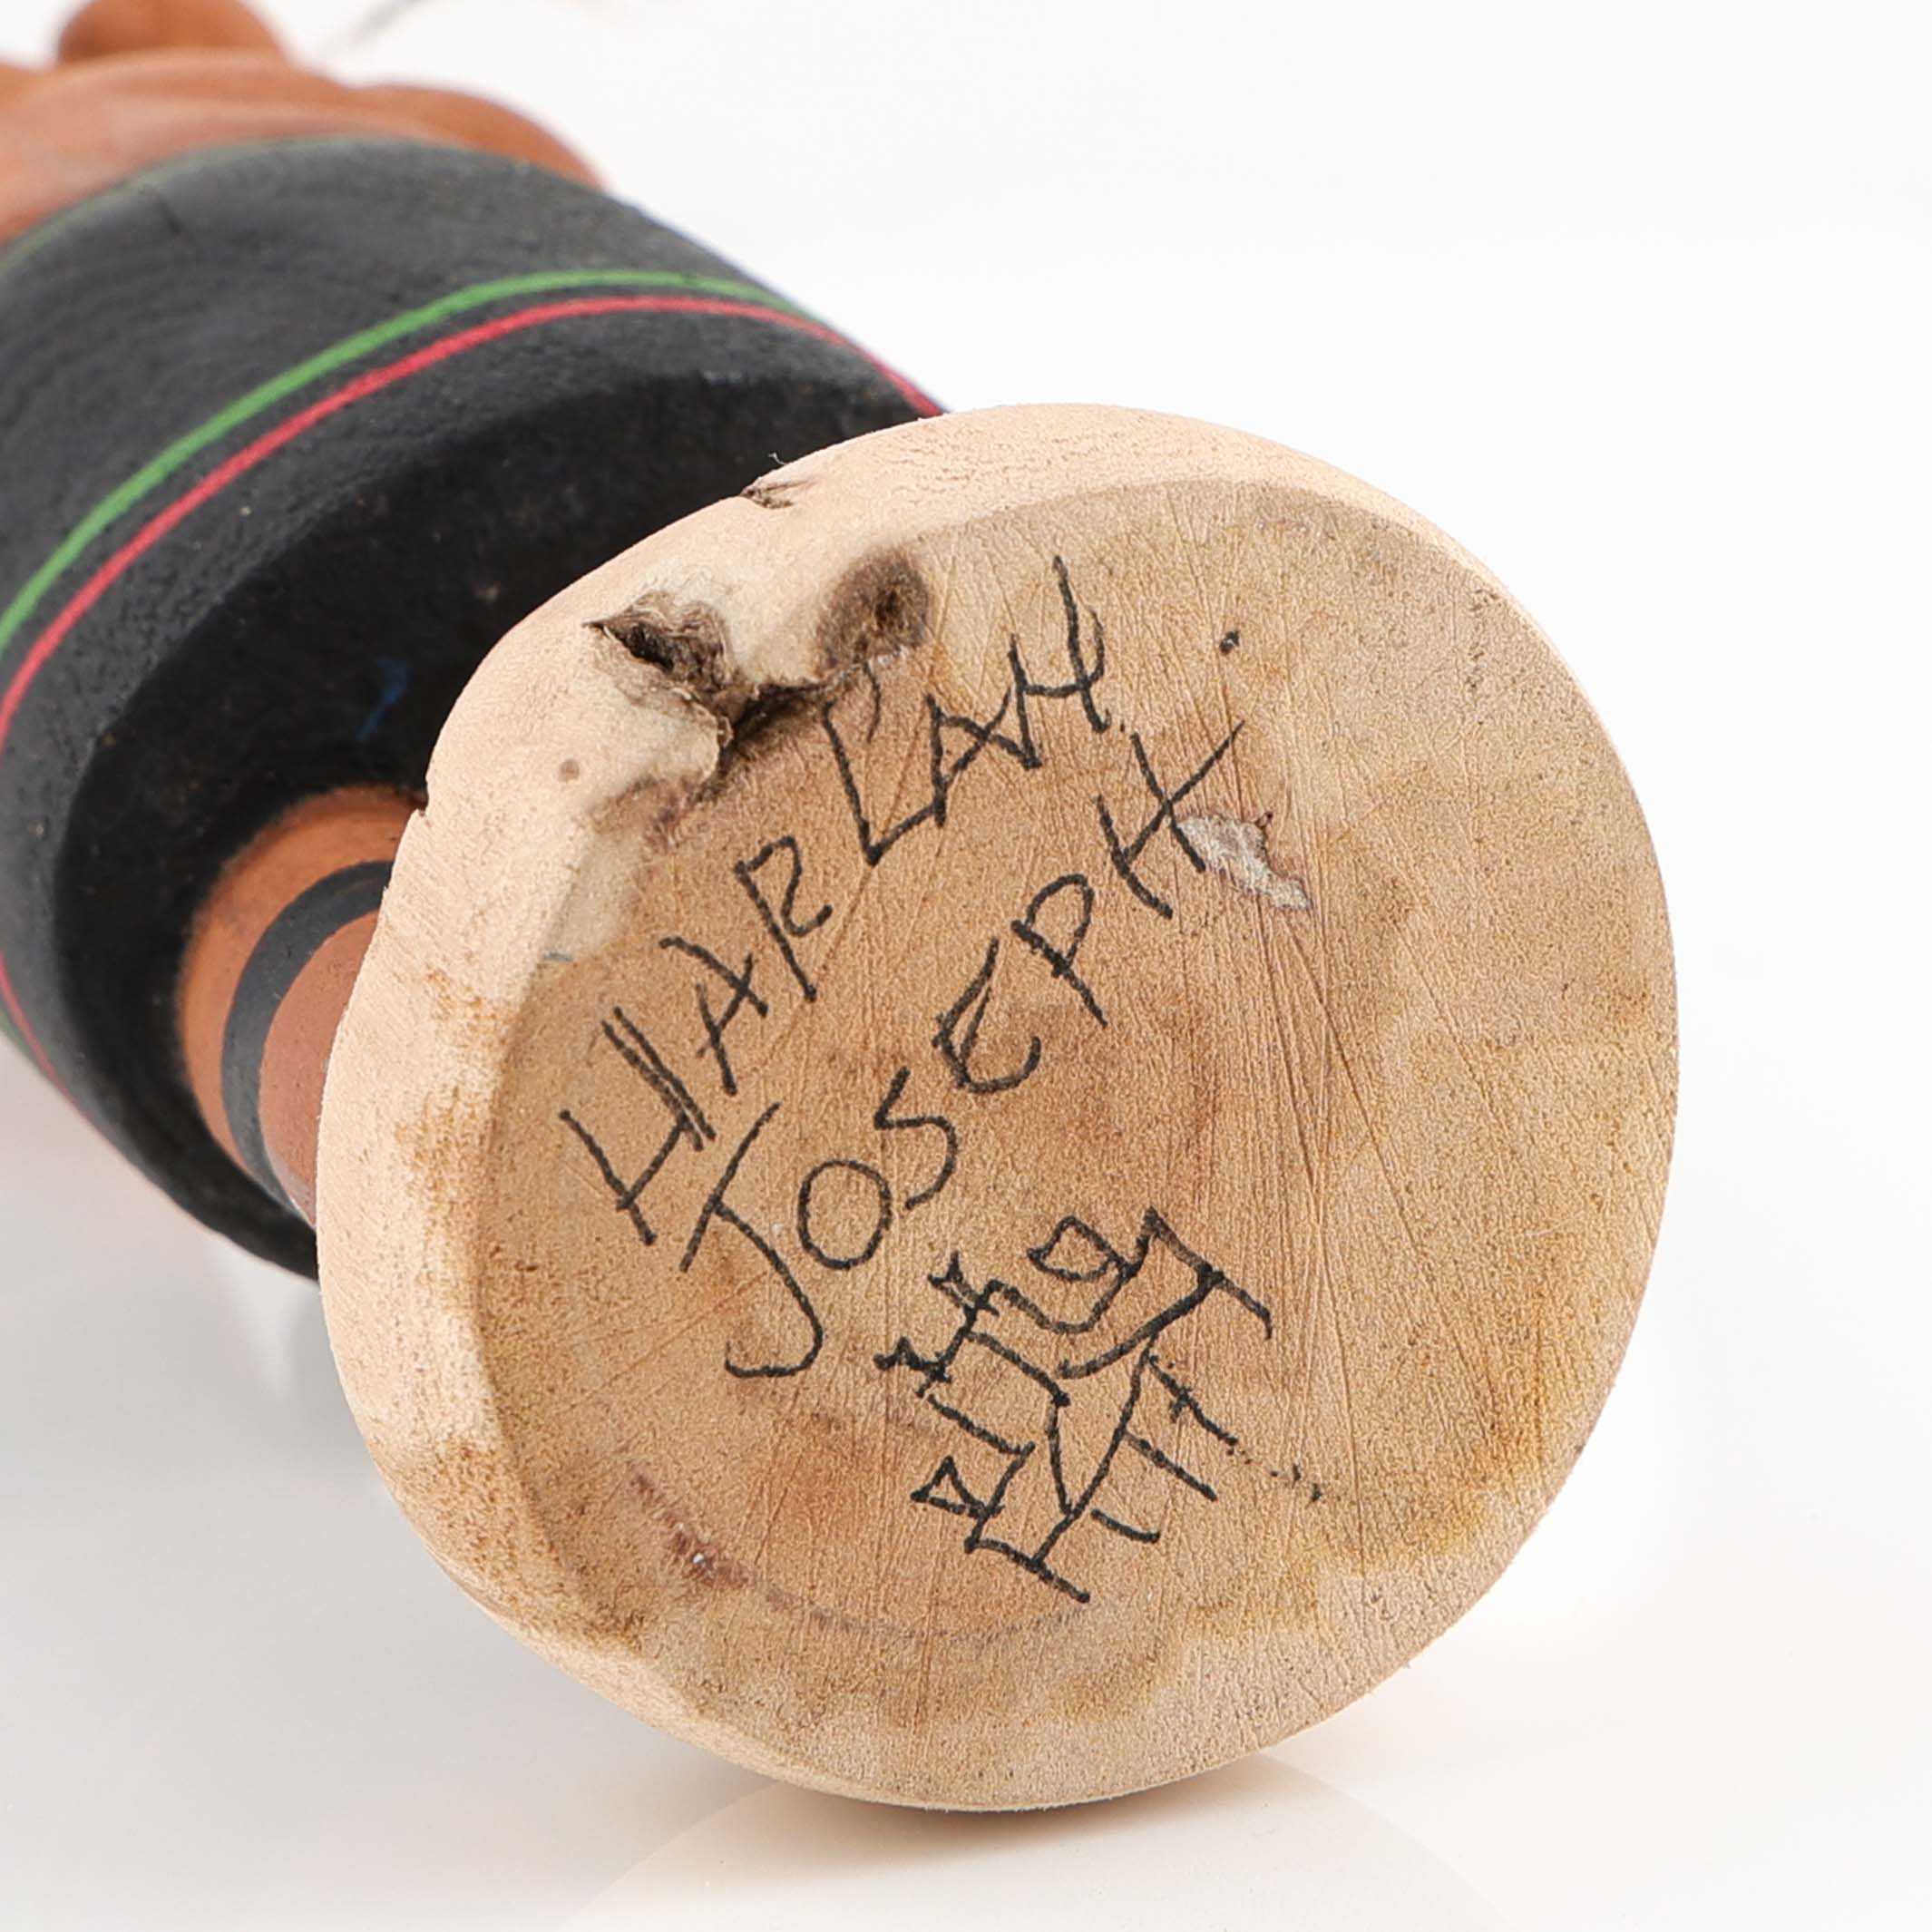 HARLAN
JOSEPH